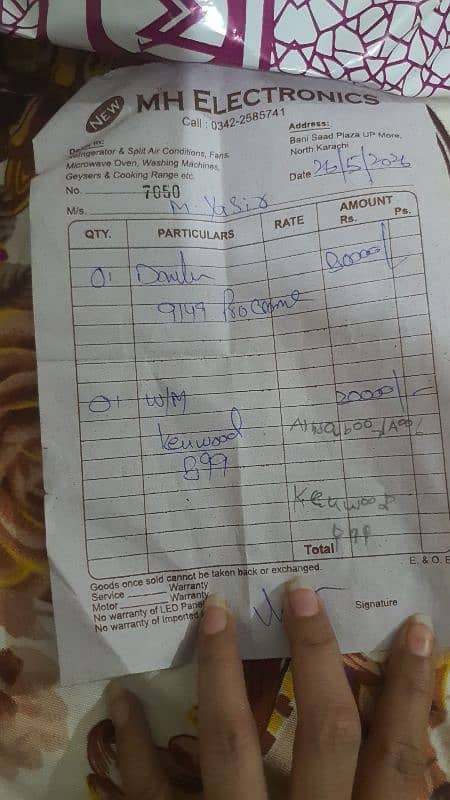 NEW MH ELECTRONICS
Call : 0342-2585741
Address:
Bani Saad Plaza UP More,
North Karachi
Refrigerator & Split Air Conditions, Fans,
Microwave Oven, Washing Machines,
Geysers & Cooking Range etc.
Date 26/5/2026
No. 7050
M/s. M. Yasir
QTY. PARTICULARS RATE AMOUNT
Rs. Ps.
01
9149
01 W/M 20000/-
Kenwood
899
Kenwood
899
Total
E. & O. E
Goods once sold cannot be taken back or exchanged.
Service Warranty
Motor Warranty
No warranty of LED Panel
No warranty of Imported
Signature